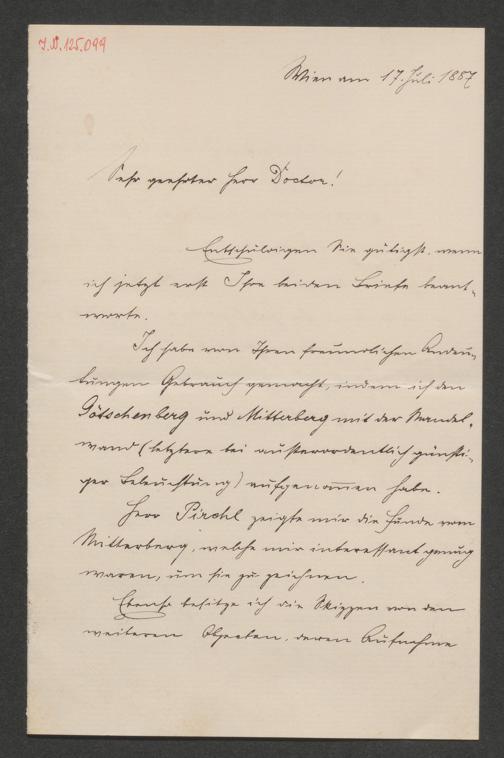 J.N. 125.099
Wien am 17. Juli 1887
Sehr geehrter Herr Doctor!
Entschuldigen Sie gütigst, wenn
ich jetzt erst Ihre beiden Briefe beant-
worte.
Ich habe von Ihren freundlichen Andeu-
tungen Gebrauch gemacht, indem ich den
Götschenberg und Mitterberg mit der Mandel-
wand (letztere bei außerordentlich günsti-
ger Beleuchtung) aufgenom̅en habe.
Herr Pirchl zeigte mir die Funde vom
Mitterberg, welche mir interessant genug
waren, um sie zu zeichnen.
Ebenso besitze ich die Skizzen von den
weiteren Objecten, deren Aufnahme